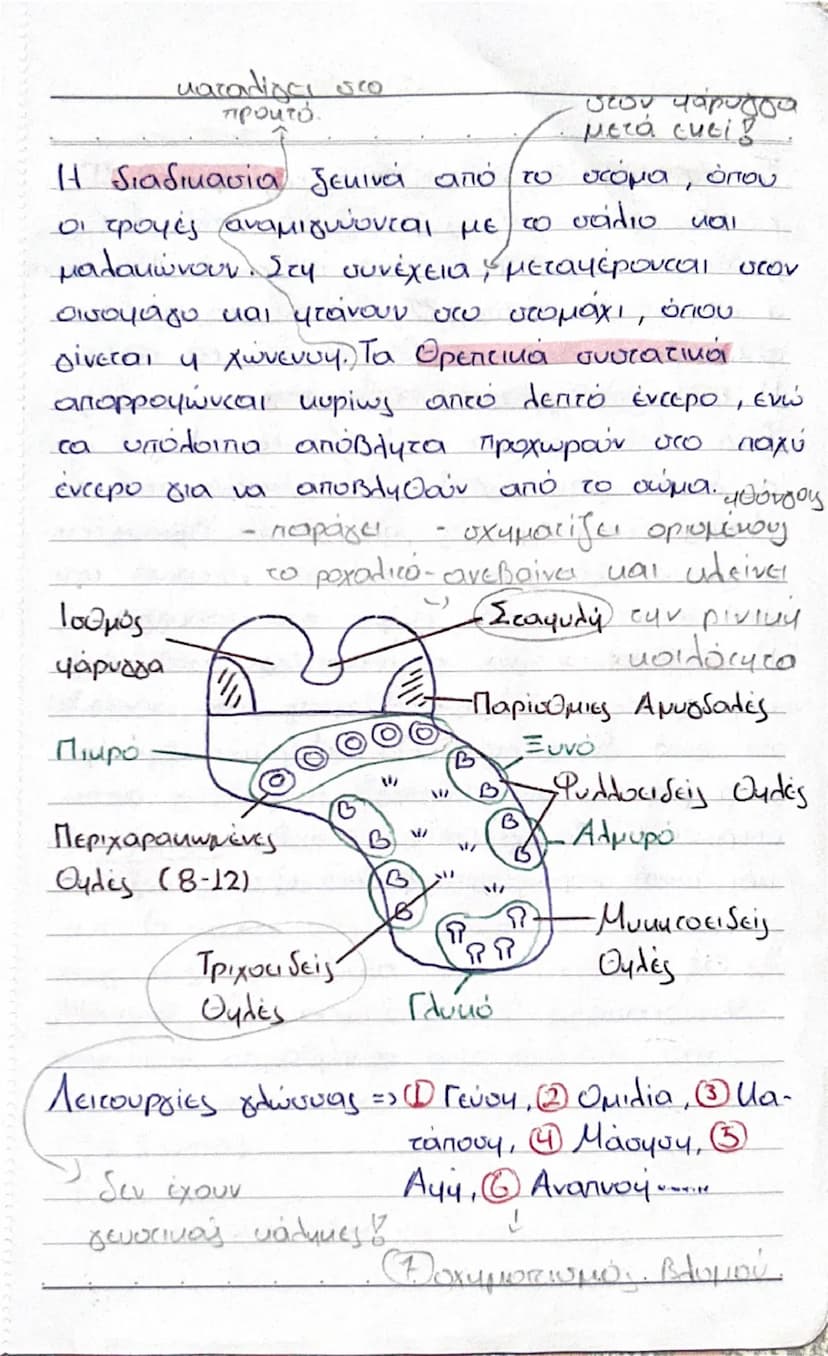 καταλήγει στο
πρωκτό.
στον φάρυγγα
μετά εκεί!
Η διαδικασία ξεκινά από το στόμα, όπου
οι τροφές αναμιγνύονται με το σάλιο και
μαλακώνουν. Στη συνέχεια, μεταφέρονται στον
οισοφάγο και φτάνουν στο στομάχι, όπου
γίνεται η χώνευση. Τα θρεπτικά συστατικά
απορροφώνται κυρίως από λεπτό έντερο, ενώ
τα υπόλοιπα απόβλητα προχωρούν στο παχύ
έντερο για να αποβληθούν από το σώμα.
φθόγγους
- παράγει - σχηματίζει ορισμένους
το ροχαλητό - ανεβαίνει και κλείνει
Ισθμός
φάρυγγα
Σταφυλή την ρινική
κοιλότητα
Παρίσθμιες Αμυγδαλές
Πικρό
Ξυνό
Φυλλοειδείς Θηλές
Περιχαρακωμένες
Θηλές (8-12)
Αλμυρό
Μυκητοειδείς
Θηλές
Τριχοειδείς
Θηλές
Γλυκό
Λειτουργίες γλώσσας => ① Γεύση, ② Ομιλία, ③ Κα-
τάποση, ④ Μάσηση, ⑤
Αφή, ⑥ Αναπνοή......
δεν έχουν
γευστικούς κάλυκες!
⑦ σχηματισμός βλωμού.